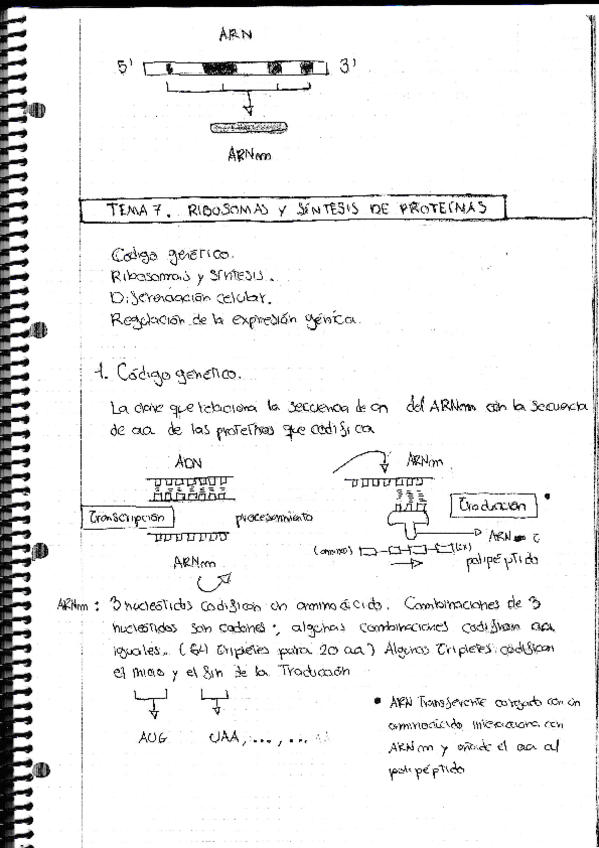 ARN
5' 3'
ARNm
TEMA 7. RIBOSOMAS Y SÍNTESIS DE PROTEÍNAS
Código genético.
Ribosomas y síntesis.
Diferenciación celular.
Regulación de la expresión génica.
1. Código genético.
La clave que relaciona la secuencia de an del ARNm con la secuencia
de aa de las proteínas que codifica
ADN
ARNm
Transcripción
procesamiento
Traducción
ARNm
ARN
(amino)
polipéptido
ARNm: 3 nucleótidos codifican un aminoácido. Combinaciones de 3
nucleótidos son codones; algunas combinaciones codifican aa
iguales. (64 tripletes para 20 aa) Algunos tripletes codifican
el inicio y el fin de la Traducción
AUG UAA, ..., ...
• ARN Transferente cargado con un
aminoácido interacciona con
ARNm y añade el aa al
polipéptido